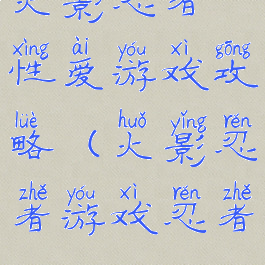 火影忍者
xìng ài yóu xì gōng
性爱游戏攻
lüè huǒ yǐng rěn
略（火影忍
zhě yóu xì rěn zhě
者游戏忍者